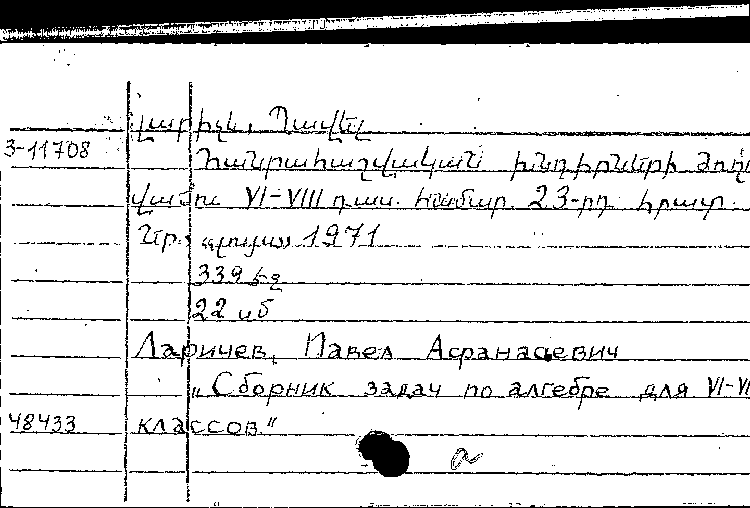 Լարիչև, Պավել
3-11708 Հանրահաշվական խնդիրների ժող
վածու VI-VIII դաս. համար. 23-րդ հրատ.
Եր., «լույս» 1971
339 էջ
22 սմ
Ларичев, Павел Афанасевич
„Сборник задач по алгебре для VI-VI
48433 классов."